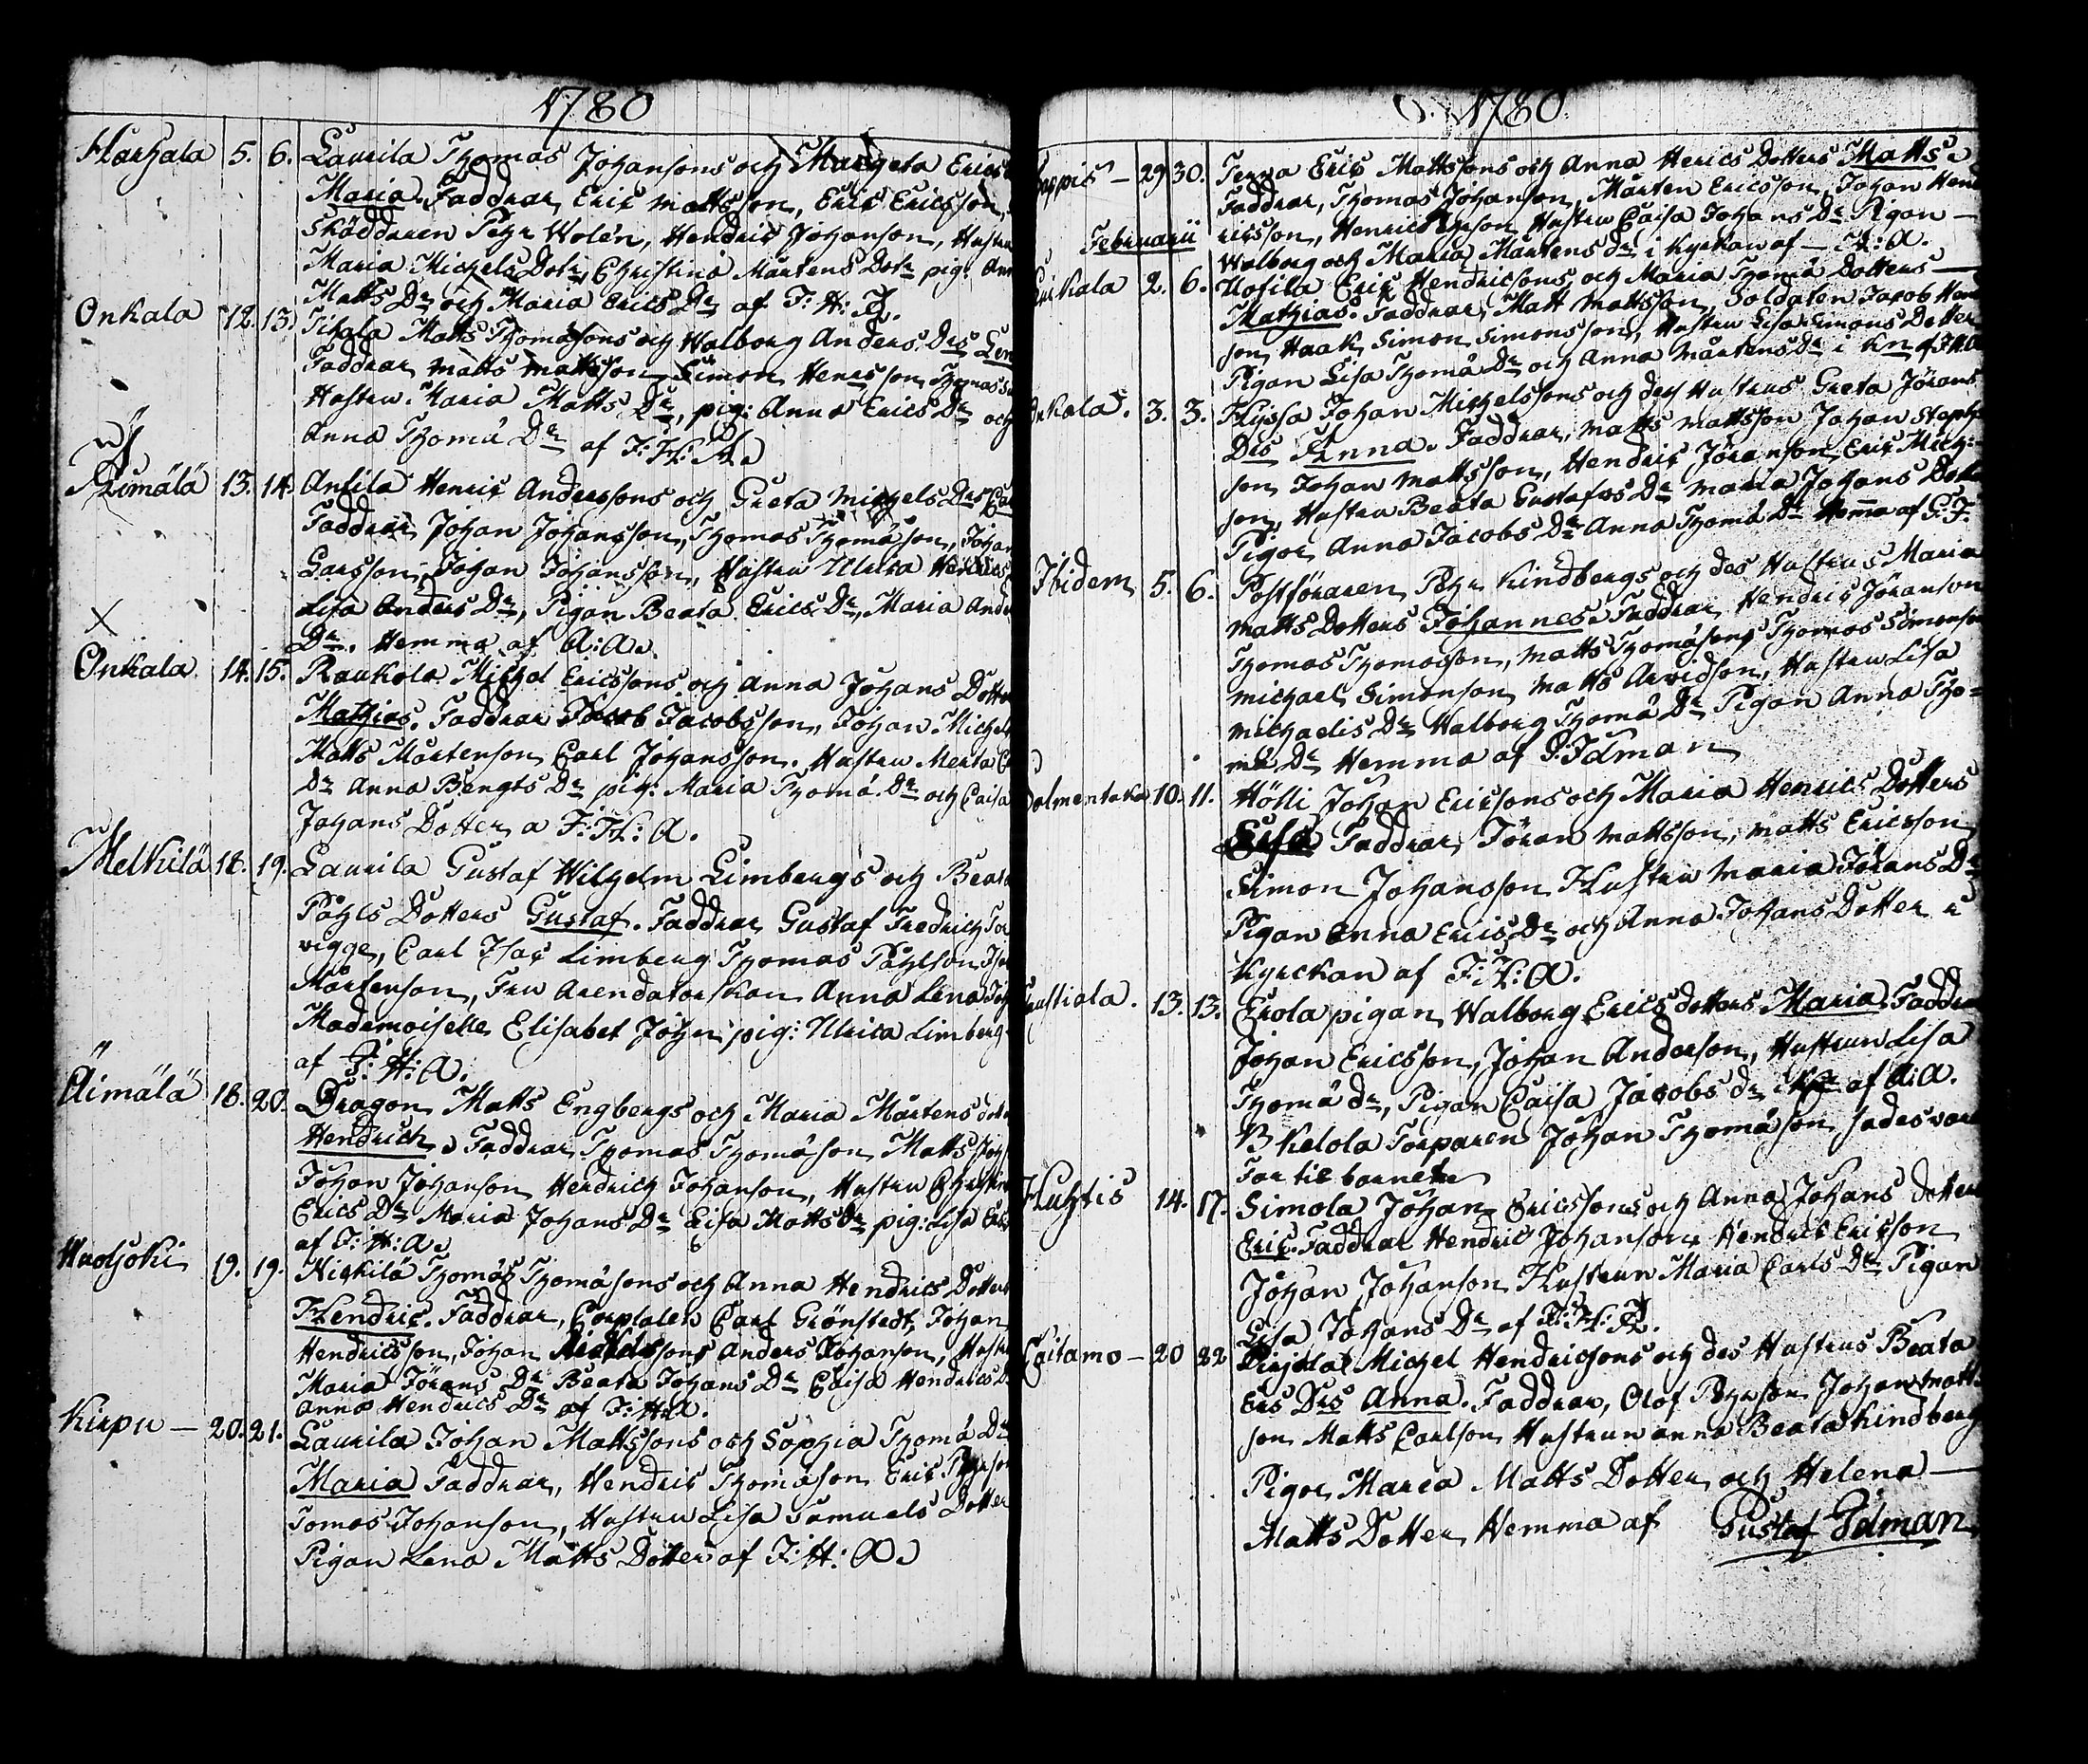 1780
Harhala 5. 6. Laurila Thomas Johansons och Margeta Erics
Maria. Faddrar, Eric Mattsson, Eric Ericsson,
Skäddaren Pehr Wolén, Hendric Johanson, Hustru
Maria Michels Dotr, Christina Mårtens Dotr pig: Ann
Matts Dr och Maria Erics Dr af F: H: A.
Onkala 12. 13. Tikala Matts Thomæsons och Walborg Anders Drs Len
Faddrar, Matts Mattsson Simon Henrsson Thomas
Hustru Maria Matts Dr, pig: Anna Erics Dr och
Anna Thomæ Dr af F: H: A.
Äimälä 13. 14. Anfila Henric Anderssons och Greta Michels Drs
Faddrar, Johan Johansson, Thomas Thomæson, Johan
Larsson, Johan Johansson, Hustru Ulrica Hendrics
Lisa Anders Dr, Pigan Beata Erics Dr, Maria And
Dr. Hemma af A: A.
Onkala 14. 15. Raukola Michel Ericssons och Anna Johans Dotters
Mathias. Faddrar Jacob Jacobsson, Johan Michels
Matts Mårtenson, Carl Johansson. Hustru Merta
Dr Anna Bengts Dr pig: Maria Thomæ Dr och Caisa
Johans Dotter a F: H: A.
Melkilä 18. 19. Laurila Gustaf Wilhelm Limbergs och Beata
Påhls Dotters Gustaf. Faddrar, Gustaf Fredrich
vigge, Carl Isac Limberg Thomas Påhlson
Mårtenson, Fru Arendatorskan Anna Lena
Mademoiselle Elisabet John pig: Ulrica Limberg
af F: H: A.
Äimälä 18. 20. Dragon Matts Engbergs och Maria Mårtens
Hendrich. Faddrar, Thomas Thomæson Matts
Johan Johanson Hendrich Johanson, Hustru Christina
Erics Dr Maria Johans Dr Lisa Matts Dr pig: Lisa
af F: H: A.
Huoljoki 19. 19. Nickilä Thomas Thomæsons och Anna Hendrics Dotters
Hendric. Faddrar, Corplalen Carl Grönstedt, Johan
Hendricsson, Johan Anders Johanson,
Maria Jörans Dr Beata Johans Dr Caisa Hendrics D
Anna Hendrics Dr af F: H: A.
Kirpu — 20. 21. Laurila Johan Mattssons och Sophia Thomæ Dr
Maria Faddrar, Hendric Thomæson Eric Pehrson
Tomas Johanson, Hustru Lisa Samuels Dotter
Pigan Lena Matts Dotter af F: H: A.
1780.
29 30. Terra Eric Mattsons och Anna Herics Dotters Matts.
Faddrar, Thomas Johanson, Mårten Ericsson, Johan Hend
ricsson, Henric Hustru Caisa Johans Dr Pigan —
Walborg och Maria Mårtens dr i Kyrkan af — H: A.
Februarii
2. 6. Uofila Eric Hendricsons och Maria Thomæ Dotters —
Mathias. Faddrar, Matt Mattsson, Soldaten Jacob Hen
son Haak Simon Simonsson, Hustru Lisa Simons Dotter
Pigan Lisa Thomæ Dr och Anna Mårtens Dr i Kn af F.H.A
Onkala. 3. 3. Hyssa Johan Michelssons och des Hustrus Greta Jörans
Drs Anna. Faddrar, Matts Mattsson Johan Staph
son, Johan Mattsson, Hendric Jöranson, Eric Mich:
son, Hustru Beata Gustafvs Dr Maria Johans Dotter
Pigor Anna Jacobs Dr Anna Thomæ Dr Hemma af G: F.
Ibidem 5. 6. Postföraren Pehr Kindbergs och des Hustrus Maria
Matts Dotters Johannes. Faddrar Hendric Jöranson
Thomas Thomasson, Matts Thomæson Thomas Simonson
Michael Simonson Matts Arvidson, Hustru Lisa
Michaelis Dr Walborg Thomæ Dr Pigan Anna Tho-
mæ Dr Hemma af G: Idman
10. 11. Hölli Johan Ericsons och Maria Henrics Dotters
Lisa Faddrar, Jöran Mattsson, Matts Ericsson
Simon Johansson Hustru Maria Jörans Dr
Pigan Anna Erics Dr och Anna Johans Dotter i
Kyrckan af F: H: A.
13. 13. Erola pigan Walborg Erics dotters Maria. Faddrar
Johan Ericsson, Johan Anderson, Hustrun Lisa
Thomæ dr, Pigan Caisa Jacobs dr i Kn af A: A.
Kelola Torparen Johan Thomæson sades vara
Far til barnet
Huhtis 14. 17. Simola Johan Ericssons och Anna Johans Dotters
Eric. Faddrar Hendric Johanson Hendric Ericson
Johan Johanson Hustrun Maria Carls Dr Pigan
Lisa Johans Dr af F: H: A.
Caitamo — 20 22 Pirjola Michel Hendricsons och des Hustrus Beata
Ers Drs Anna. Faddrar, Olof Pehrson Johan Matts
son Matts Carlson Hustrun Anna Beata Kindberg
Pigor Maria Matts Dotter och Helena —
Matts Dotter Hemma af Gustaf Idman